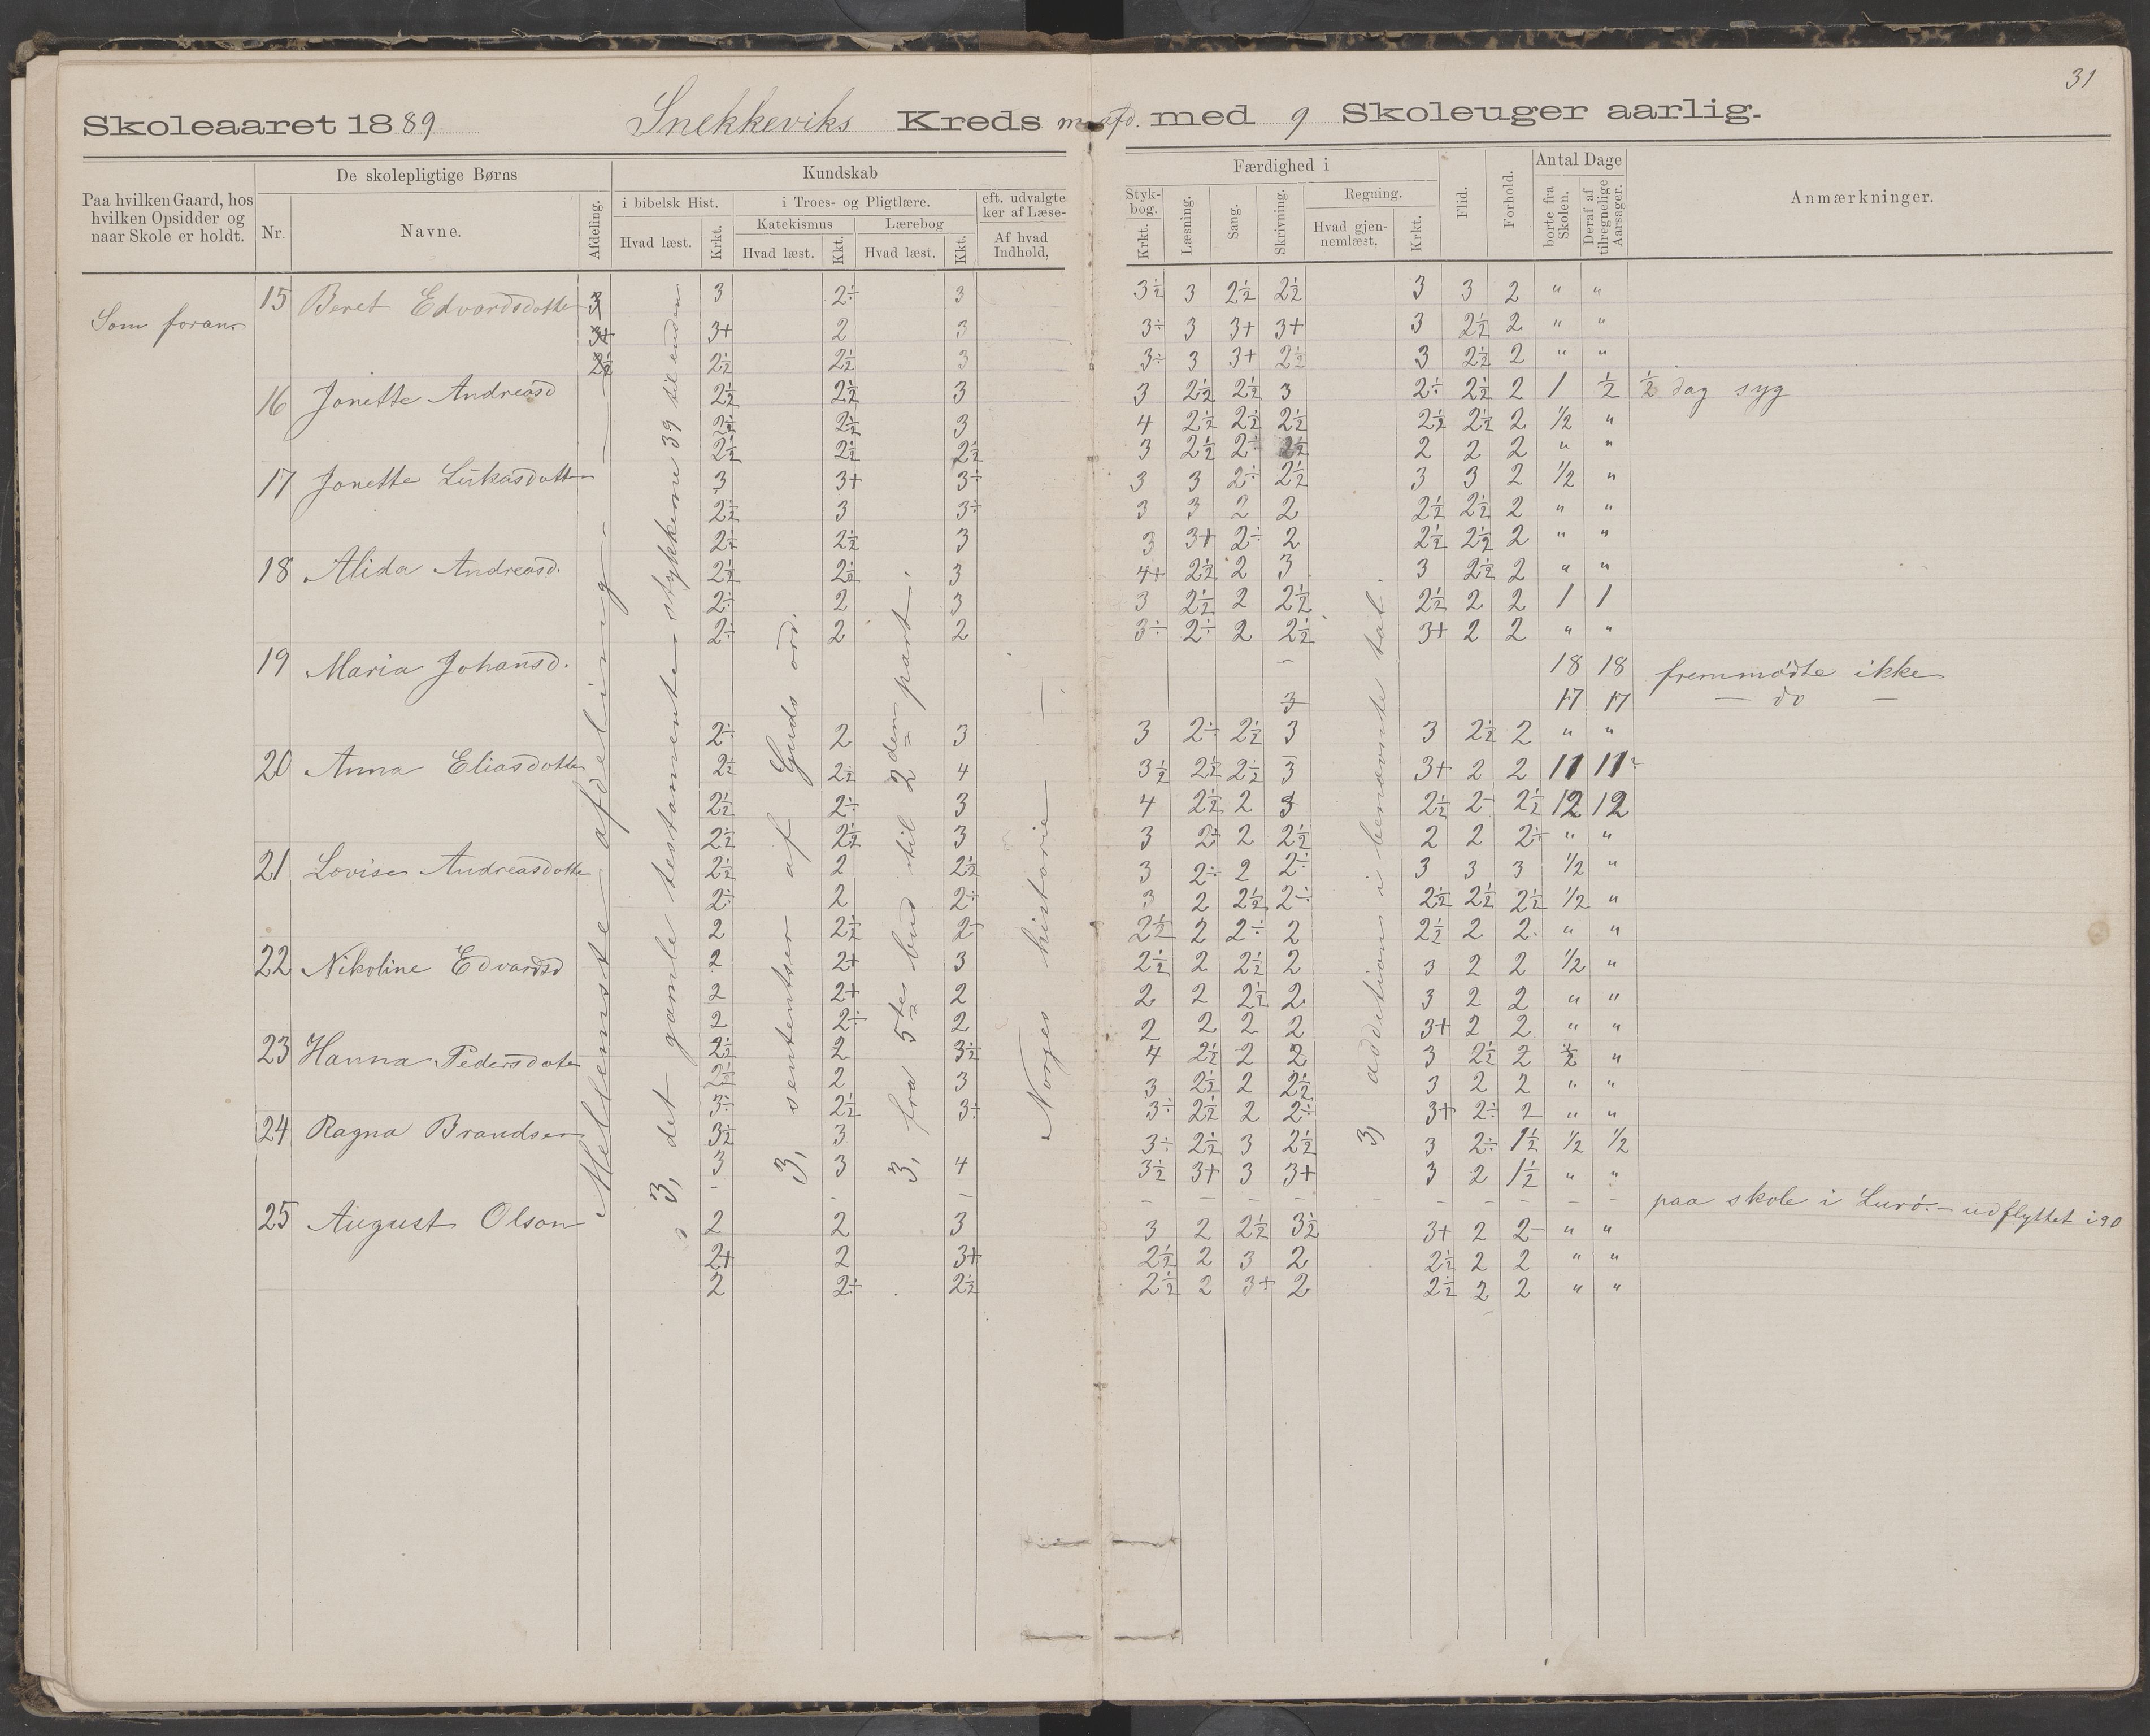 31
Skoleaaret 1889 Snekkeviks Kreds m. afd. med 9 Skoleuger aarlig.
Paa hvilken Gaard, hos hvilken Opsidder og naar Skole er holdt.
De skolepligtige Børns
Nr. Navne. Afdeling.
Kundskab
i bibelsk Hist. Hvad læst. Krkt.
i Troes- og Pligtlære.
Katekismus Hvad læst. Kkt.
Lærebog Hvad læst. Kkt.
eft. udvalgte ker af Læse- Af hvad Indhold,
Færdighed i
Styk-bog. Krkt. Læsning. Sang. Skrivning.
Regning. Hvad gjen-nemlæst. Krkt.
Flid. Forhold.
Antal Dage borte fra Skolen. Deraf af tilregnelige Aarsager.
Anmærkninger.
Som foran
Mellemste afdeling
3, det gamle testamente stykkerne 39 til enden
3, sentenser af Guds ord.
3, fra 5te bud til 2den part.
Norges historie
3, addition i benævnte tal.
15 Beret Edvardsdotter 3 3 2÷ 3 3½ 3 2½ 2½ 3 3 2 " "
3+ 3+ 2 3 3÷ 3 3+ 3+ 3 2½ 2 " "
2½ 2½ 2½ 3 3÷ 3 3+ 2½ 3 2½ 2 " "
16 Jonette Andreasd 2½ 2½ 3 3 2½ 2½ 3 2÷ 2½ 2 1 ½ ½ dag syg
2½ 2½ 3 4 2½ 2½ 2½ 2½ 2½ 2 ½ "
2½ 2½ 2½ 3 2½ 2÷ 2½ 2 2 2 " "
17 Jonette Lukasdotter 3 3+ 3÷ 3 3 2÷ 2½ 3 3 2 ½ "
2½ 3 3÷ 3 3 2 2 2½ 2½ 2 " "
2½ 2½ 3 3 3+ 2÷ 2 2½ 2½ 2 " "
18 Alida Andreasd. 2½ 2½ 3 4+ 2½ 2 3 3 2½ 2 " "
2÷ 2 3 3 2½ 2 2½ 2½ 2 2 1 1
2÷ 2 2 3÷ 2÷ 2 2½ 3+ 2 2 " "
19 Maria Johansd. – 18 18 fremmødte ikke
3 17 17 – do –
2÷ 2 3 3 2÷ 2½ 3 3 2½ 2 " "
20 Anna Eliasdotter 2½ 2½ 4 3½ 2½ 2½ 3 3+ 2 2 11 11
2½ 2÷ 3 4 2½ 2 3 2½ 2- 2½ 12 12
2½ 2½ 3 3 2÷ 2 2½ 2 2 2÷ " "
21 Lovise Andreasdotter 2½ 2 2½ 3 2÷ 2 2÷ 3 3 3 ½ "
2÷ 2 2÷ 3 2 2½ 2÷ 2½ 2½ 2½ ½ "
2 2½ 2- 2½ 2 2÷ 2 2½ 2 2 " "
22 Nikoline Edvardsd 2 2+ 3 2½ 2 2½ 2 3 2 2 ½ "
2 2+ 2 2 2 2½ 2 3 2 2 " "
2 2÷ 2 2 2 2 2 3+ 2 2 " "
23 Hanna Pedersdoter 2½ 2 3½ 4 2½ 2 2 3 2½ 2 ½ "
2½ 2 3 3 2½ 2 2½ 3 2 2 " "
3÷ 2½ 3÷ 3÷ 2½ 2 2÷ 3+ 2÷ 2 " "
24 Ragna Brandser 3½ 3 3÷ 2½ 3 2½ 3 2÷ 1½ ½ ½
3 3 4 3½ 3+ 3 3+ 3 2 1½ " "
– – – – – – – – – – – – – paa skole i Lurø. – udflyttet i 90
25 August Olson 2 2 3 3 2 2½ 3½ 3+ 2 2- " "
2+ 2 3+ 2½ 2 3 2 2½ 2 2 " "
2 2÷ 2½ 2½ 2 3+ 2 2½ 2 2 " "